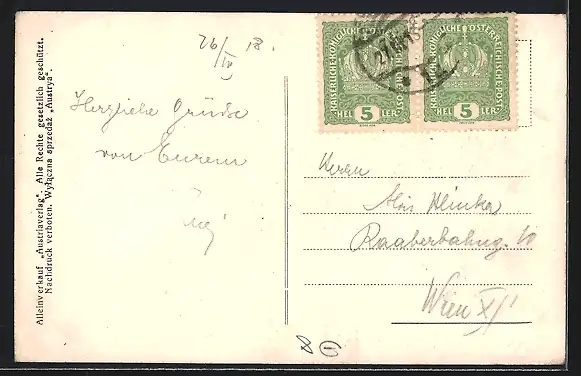 Alleinverkauf „Austriaverlag“. Alle Rechte gesetzlich geschützt.
Nachdruck verboten. Wyłączna sprzedaż „Austrya“.
26/IV 18.
Herzliche Grüße
von Eurem
KAISERLICHE KÖNIGLICHE ÖSTERREICHISCHE POST
5
HELLER
KAISERLICHE KÖNIGLICHE ÖSTERREICHISCHE POST
5
HELLER
Herrn
Alois
Raaberbahng. 10
Wien X/1
8
1